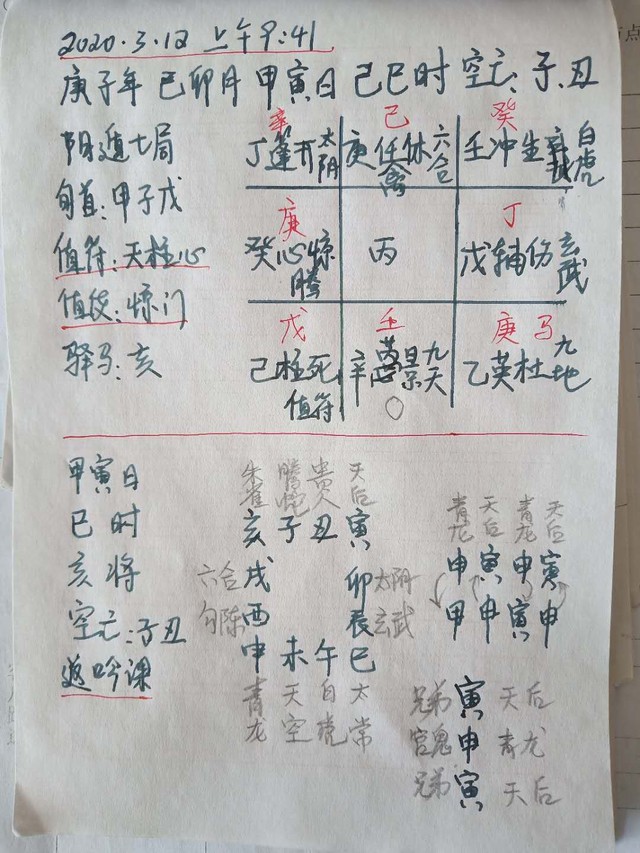 2020.3.12 上午9:41
庚子年 己卯月 甲寅日 己巳时 空亡:子、丑
阳遁七局
旬首:甲子戊
值符:天柱心
值役:惊门
驿马:亥
辛 己 癸
丁蓬开太阴 庚任休六合 壬冲生 白虎
禽
庚 丁
癸心惊 丙 戊辅伤玄武
腾
戊 壬 庚 马
己柱死 辛 芮 景九天 乙英杜九地
值符 ○
甲寅日
巳 时
亥 将
空亡:子丑
返吟课
朱雀 腾蛇 贵人 天后
亥 子 丑 寅
六合 戌 卯 太阴
勾陈 酉 辰 玄武
申 未 午 巳
青龙 天空 白虎 太常
青龙 天后 青龙 天后
申 寅 申 寅
甲 申 寅 申
兄弟 寅 天后
官鬼 申 青龙
兄弟 寅 天后